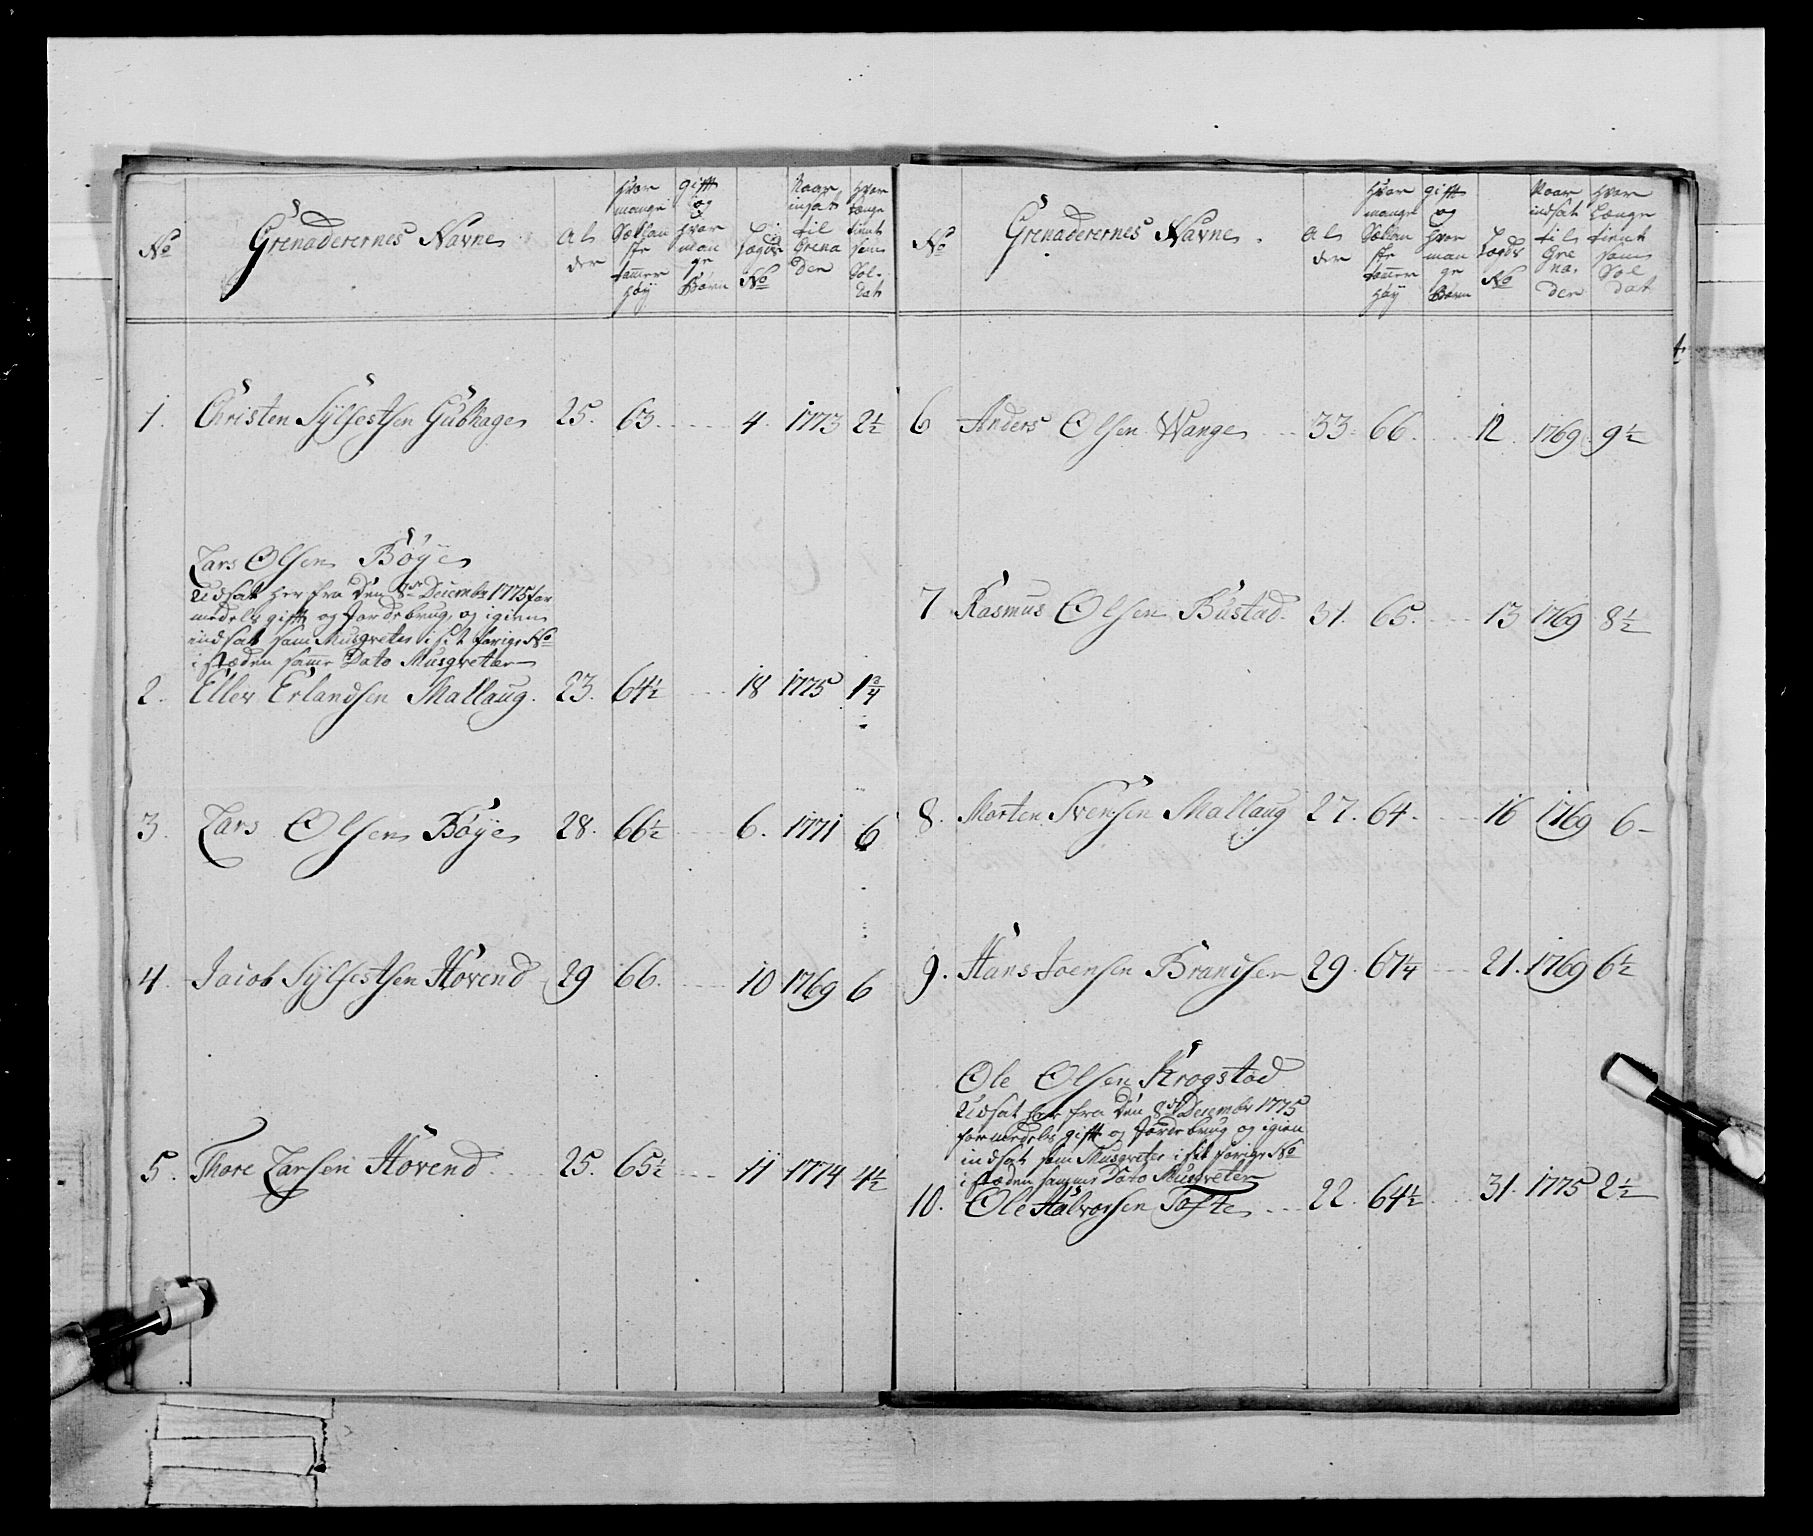 No
Grenaderernes Navne
Al
der
Hvor
mange
Sællan
ste
tommer
Høÿ
gift
og
hvor
man
ge
Børn
Lægds
No
Naar
insat
til
Grena
der
Hvor
længe
tient
som
Sol-
dat
1. Christen Sylfestsen Gubhage 25. 63. 4. 1773 2½
Lars Olsen Böÿe
Udsat her fra den 8de Decembr 1775 for
medels gift og Jordebrug og igien
indsat som Musqveter i sit forige No
i stæden samme Dato Musqveter
2. Ellev Erlandsen Mallaug. 23. 64½ 18 1775 1¾
3. Lars Olsen Böÿe 28. 66½ 6. 1771 6
4. Jacob Sylfestsen Hövend 29 66. 10 1769 6
5. Thore Larsen Hövend 25. 65½ 11 1774 4½
No
Grenaderernes Navne.
Al
der
Hvor
mange
Sællan
ste
tommer
Høÿ
gift
og
hvor
man
ge
Børn
Lægds
No
Naar
indsat
til
Gre
na-
der
Hvor
Længe
tient
som
Sol
dat
6 Anders Olsen Wange 33. 66. 12. 1769. 9½
7 Rasmus Olsen Büstad. 31. 65. 13 1769 8½
8. Morten Svensen Mallaug 27. 64. 16 1769 6
9. Hans Joensen 29. 67¼ 21. 1769 6½
Ole Olsen Krogstad
Udsat her fra den 8de Decembr 1775
formedels gift og Jordebrug og igien
indsat som Musqveter i sit forige No
i stæden samme Dato Musqveter
10. Ole Halvorsen Tofte 22. 64½ 31. 1775 2½